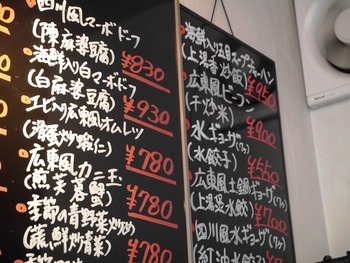 四川風マーボドーフ
(陳麻婆腐)
¥830
海鮮入り白マーボドーフ
(白麻婆腐)
¥930
エビ入り広東風オムレツ
(滑蛋炒蝦仁)
¥780
広東風カニ玉
(煎芙蓉蟹)
¥780
季節の青野菜炒め
(蒜鮮炒青菜)
¥780
季節
海鮮入り五目スープチャーハン
(上湯香炒飯)
¥950
広東風ビーフン
(干炒米)
¥900
水ギョーザ(7ヶ)
(水餃子)
¥550
広東風土鍋ギョーザ(7ヶ)
(上湯溋水餃)
¥700
四川風水ギョーザ(7ヶ)
(紅油水餃